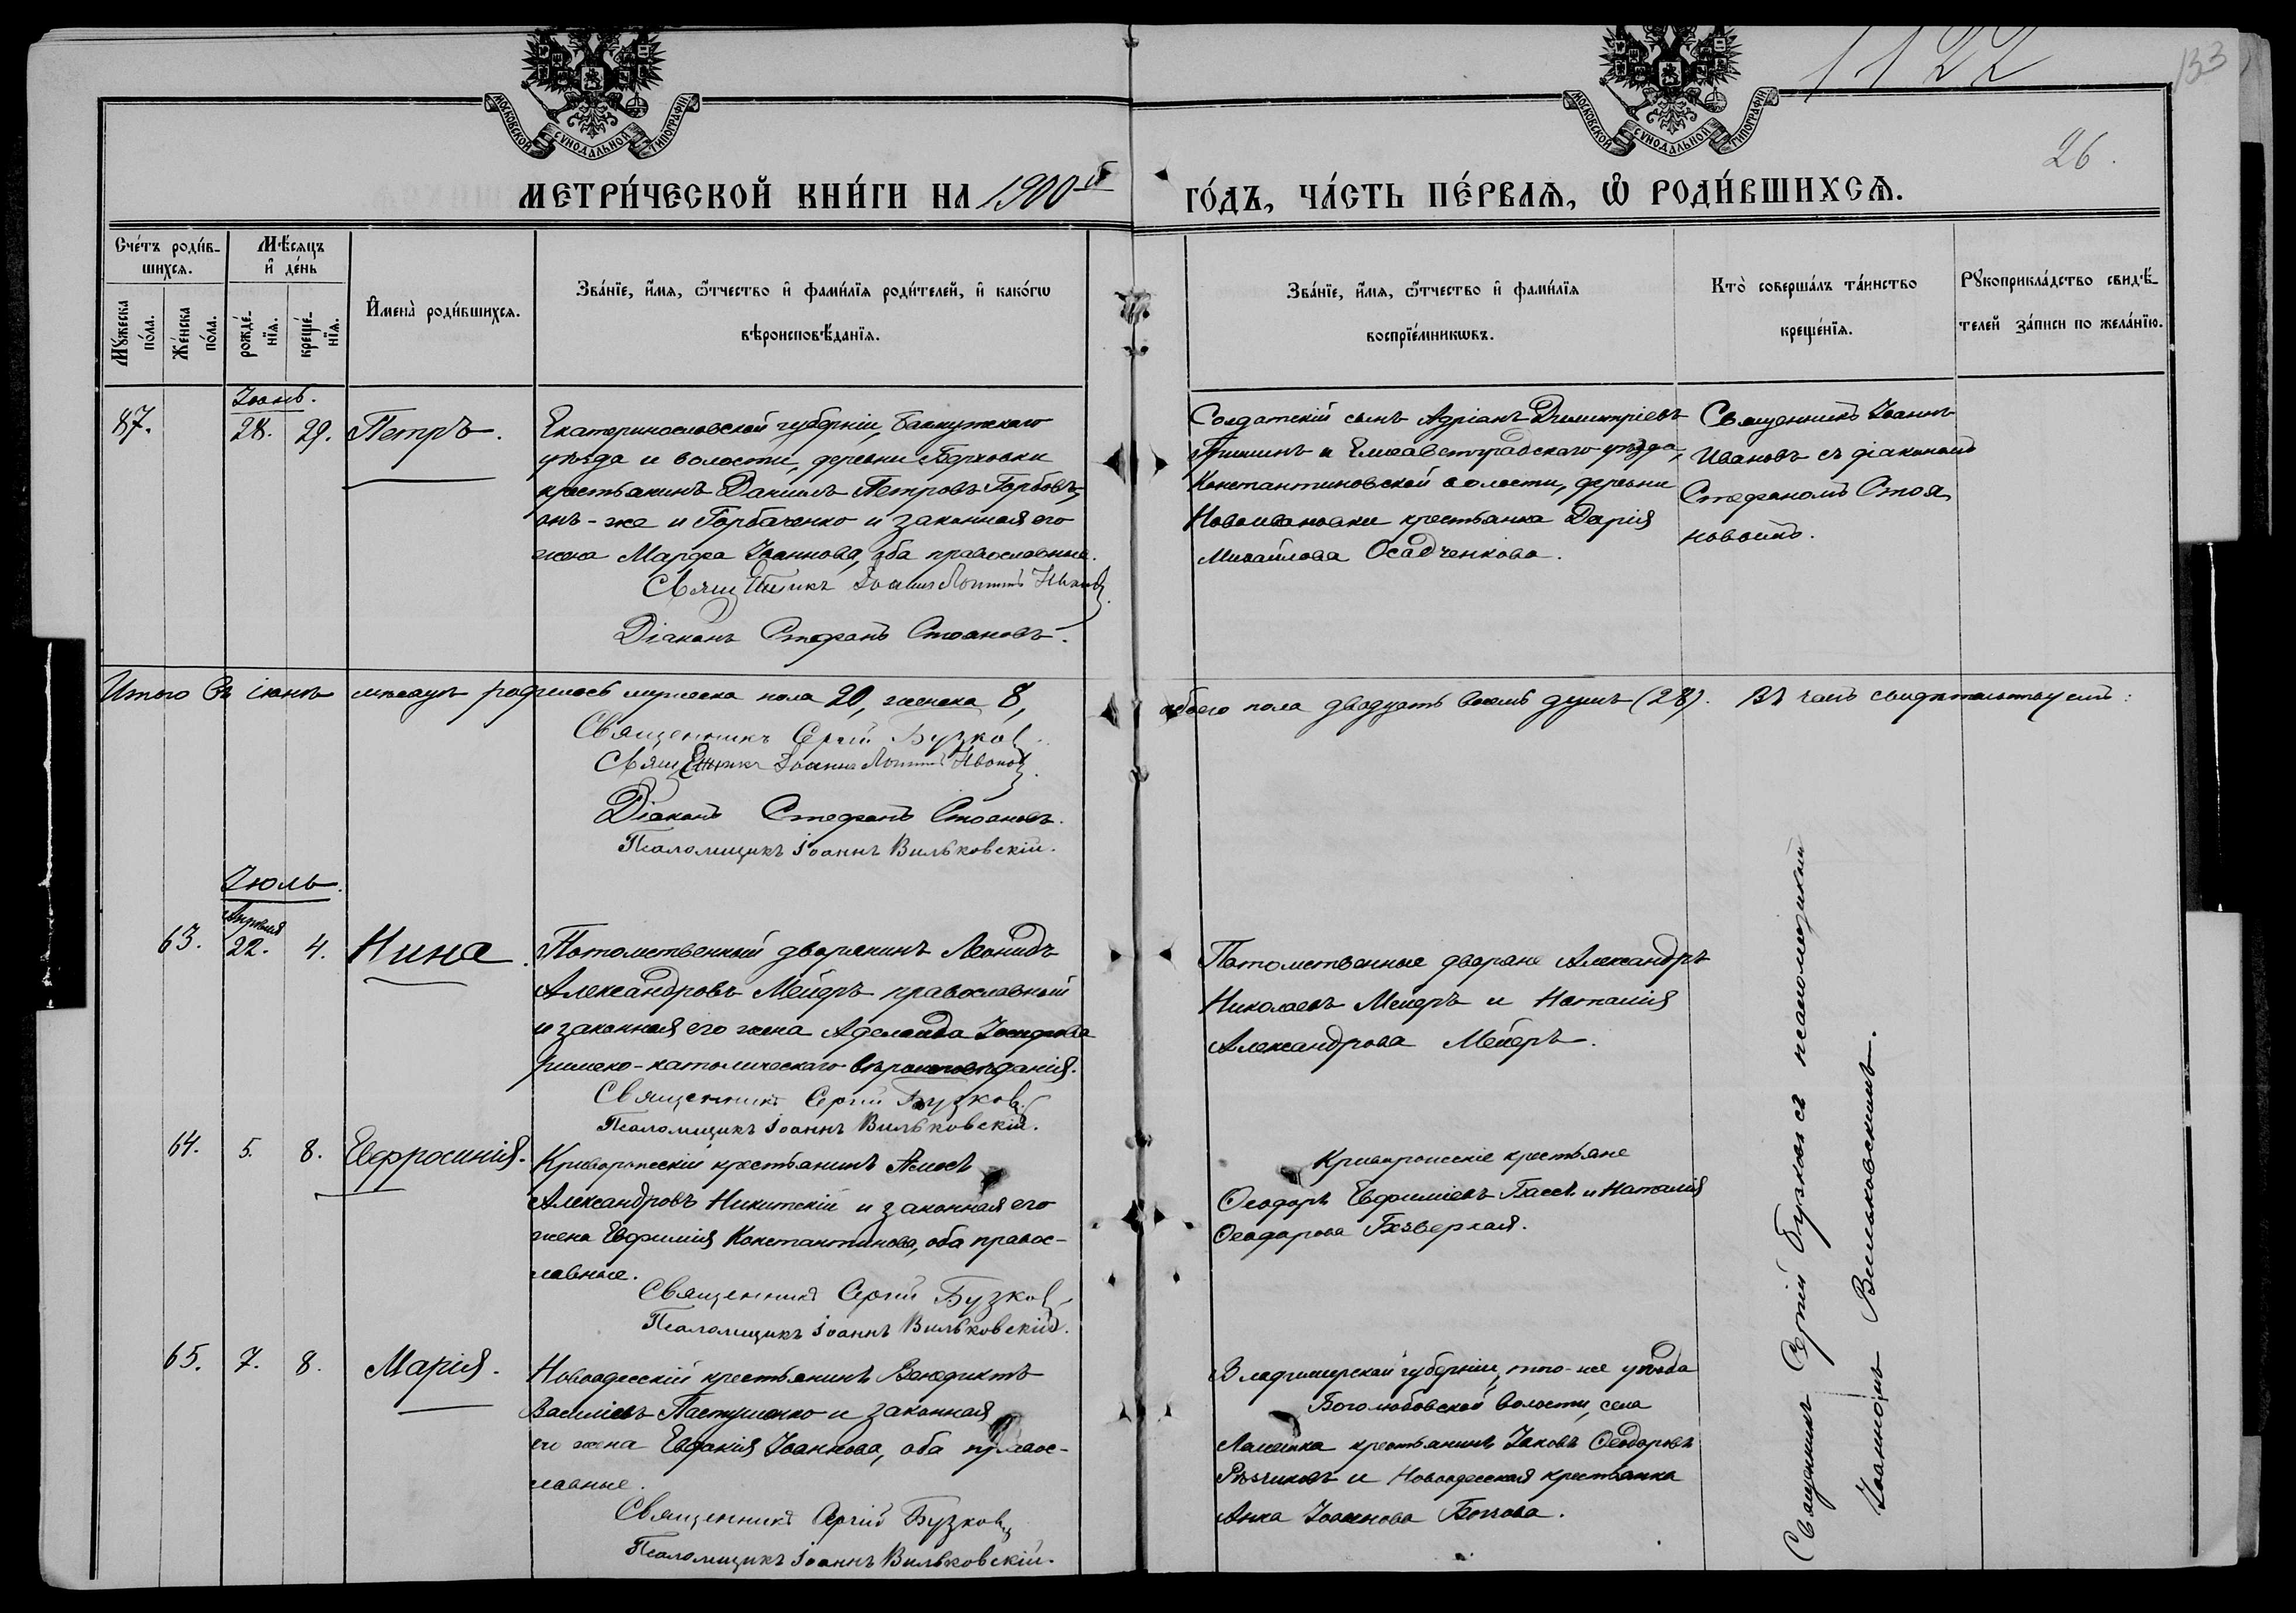 МОСКОВСКОЙ СѴНОДАЛЬНОЙ ТИПОГРАФІИ
МОСКОВСКОЙ СѴНОДАЛЬНОЙ ТИПОГРАФІИ
1122
133
26.
МЕТРИ́ЧЕСКОЙ КНИ́ГИ НА 1900й
ГО́ДЪ, ЧА́СТЬ ПЕ́РВАѦ, Ѡ РОДИ́ВШИХСѦ.
Сче́тъ роди́в-
шихсѧ.
Мꙋ́жеска
по́ла.
Же́нска
по́ла.
Мѣ́сѧцъ
и҆ де́нь
рожде́-
нїѧ.
креще́-
нїѧ.
И҆мена̀ роди́вшихсѧ.
Зва́нїе, и҆́мѧ, ѻ҆́тчество и҆ фами́лїѧ роди́телей, и҆ како́гѡ
вѣроисповѣ́данїѧ.
Зва́нїе, и҆́мѧ, ѻ҆́тчество и҆ фами́лїѧ
воспрїе́мникѡвъ.
Кто̀ соверша́лъ та́инство
креще́нїѧ.
Рꙋкоприкла́дство свидѣ́-
телей за́писи по жела́нїю.
Іюнь.
87. 28. 29. Петръ.
Екатеринославской губерніи, Бахмутскаго
уѣзда и волости, деревни Берховки
крестьянинъ Даніилъ Петровъ Горбовъ,
онъ-же и Горбаченко и законная его
жена Марѳа Іоаннова, оба православные.
Священникъ Іоаннъ Ивановъ
Діаконъ Стефанъ Стояновъ.
Солдатскій сынъ Адріанъ Димитріевъ
Гришинъ и Елисаветградскаго уѣзда,
Константиновской волости, деревни
Новоивановки крестьянка Дарія
Михайлова Осадченкова.
Священникъ Іоаннъ
Ивановъ съ діакономъ
Стефаномъ Стоя-
новымъ.
Итого въ іюнѣ мѣсяцѣ родилось мужеска пола 20, женска 8,
обоего пола двадцать восемь душъ (28). Въ чемъ свидѣтельствуемъ:
Священникъ Сергій Бузковъ
Священникъ Іоаннъ Ивановъ
Діаконъ Стефанъ Стояновъ.
Псаломщикъ Іоаннъ Вильковскій.
Іюль.
Апрѣля
63. 22. 4. Нина.
Потомственный дворянинъ Леонидъ
Александровъ Мейеръ православный
и законная его жена Аделаида Іосифова
римско-католическаго вѣроисповѣданія.
Священникъ Сергій Бузковъ
Псаломщикъ Іоаннъ Вильковскій.
Потомственные дворяне Александръ
Николаевъ Мейеръ и Наталія
Александрова Мейеръ.
64. 5. 8. Евфросинія.
Криворожскій крестьянинъ Амосъ
Александровъ Никитскій и законная его
жена Евфимія Константинова, оба правос-
лавные.
Священникъ Сергій Бузковъ
Псаломщикъ Іоаннъ Вильковскій.
Криворожскіе крестьяне
Ѳеодоръ Евфиміевъ Бассъ и Наталія
Ѳеодорова Безверхая.
65. 7. 8. Марія.
Новоодесскій крестьянинъ Венедиктъ
Василіевъ Пастушенко и законная
его жена Евфанія Іоаннова, оба правос-
лавные.
Священникъ Сергій Бузковъ
Псаломщикъ Іоаннъ Вильковскій.
Владимірской губерніи, того-же уѣзда
Боголюбовской волости, села
крестьянинъ Іаковъ Ѳеодоровъ
и Новоодесская крестьянка
Анна Іоаннова
Священникъ Сергій Бузковъ съ псаломщикомъ
Іоанномъ Вильковскимъ.